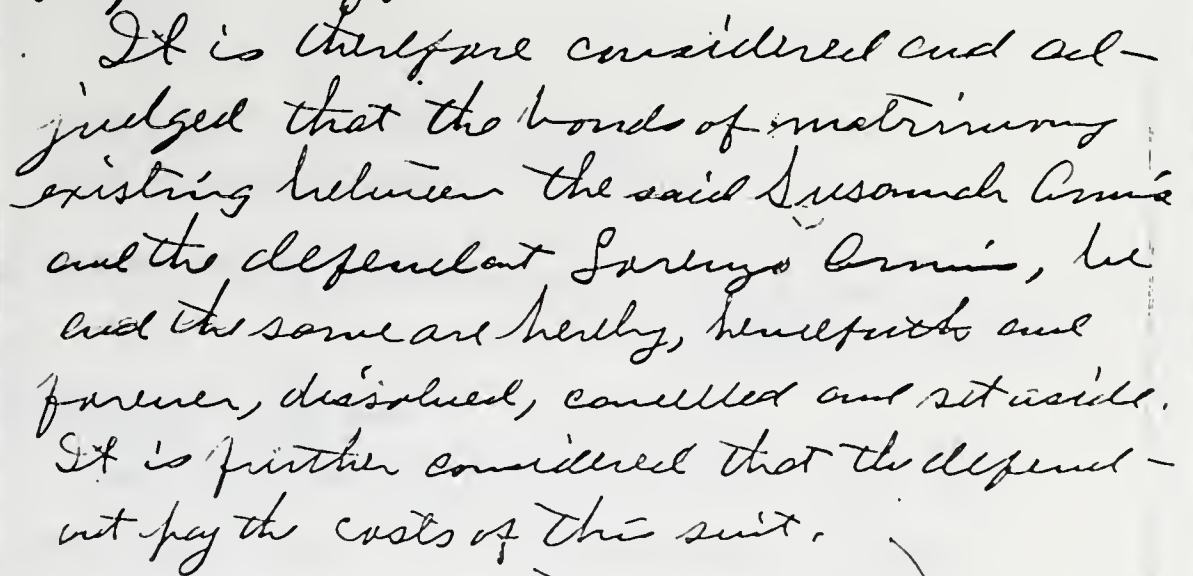 It is therefore considered and ad-
judged that the bonds of matrimony
existing between the said Susannah Annis
and the defendant Lorenzo Annis, be
and the same are hereby, henceforth and
forever, dissolved, cancelled and set aside.
It is further considered that the defend-
ant pay the costs of this suit.